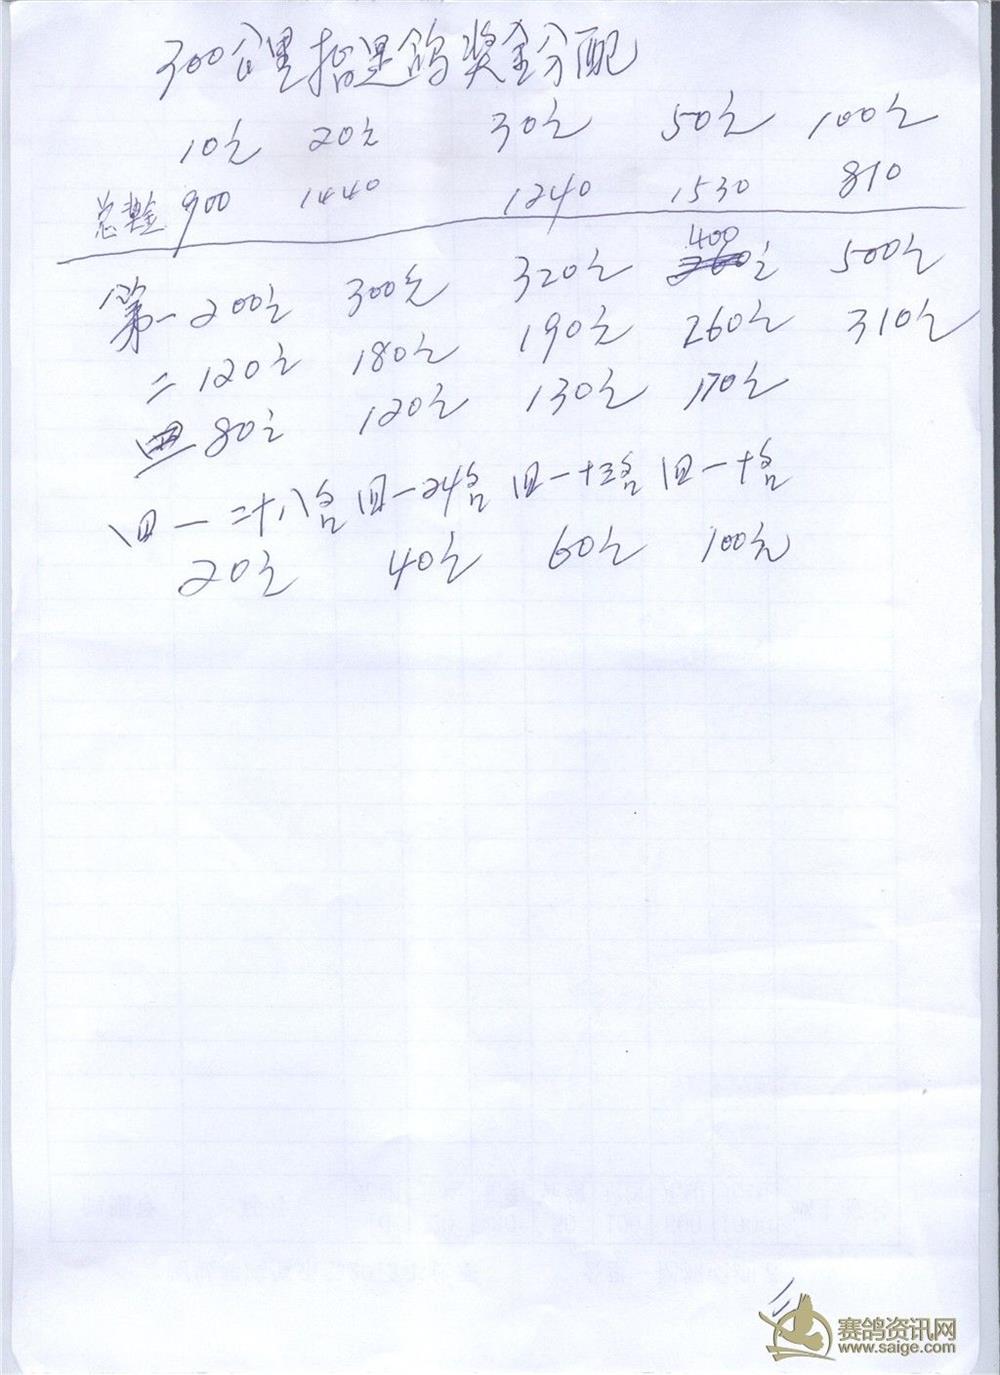 300公里指定鸽奖金分配
10元 20元 30元 50元 100元
总奖金 900 1440 1240 1530 810
第一 200元 300元 320元 400元 500元
二 120元 180元 190元 260元 310元
三 80元 120元 130元 170元
四一二十八名 四一24名 四一十三名 四一十名
20元 40元 60元 100元
赛鸽资讯网
www.saige.com